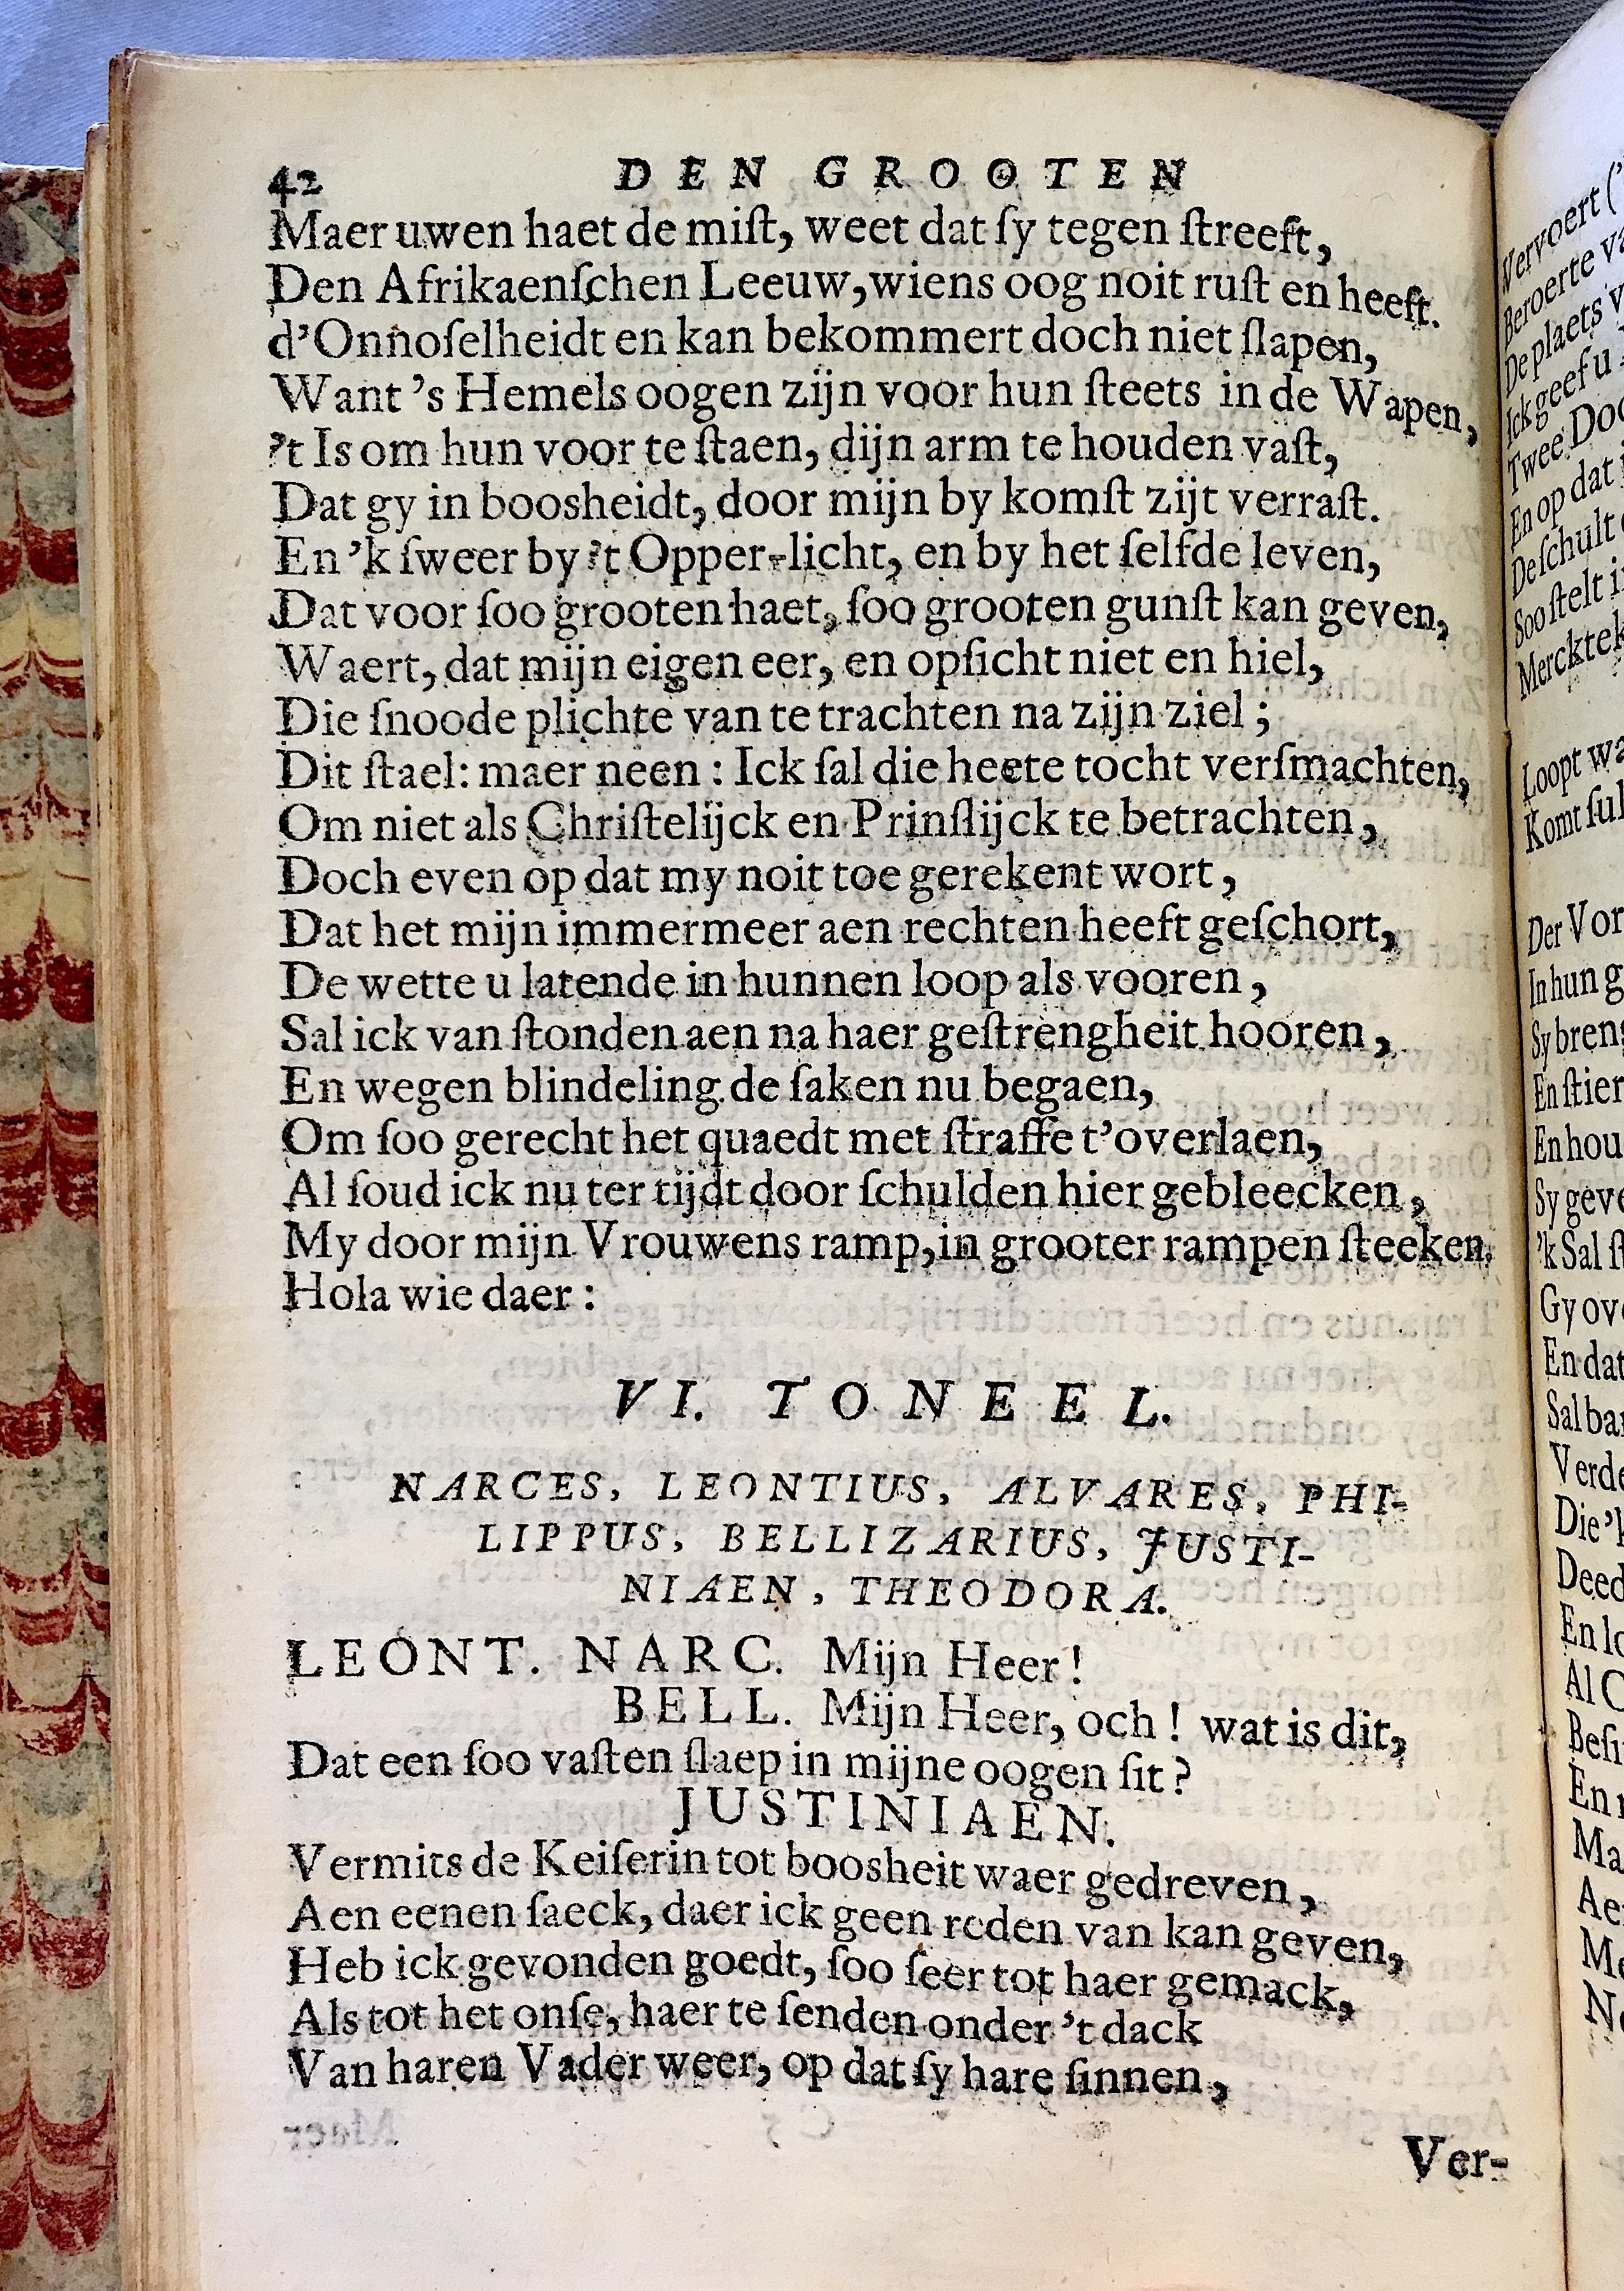 42 DEN GROOTEN
Maer uwen haet de miſt, weet dat ſy tegen ſtreeft,
Den Afrikaenſchen Leeuw, wiens oog noit ruſt en heeft.
d'Onnoſelheidt en kan bekommert doch niet ſlapen,
Want 's Hemels oogen zijn voor hun ſteets in de Wapen,
't Is om hun voor te ſtaen, dijn arm te houden vaſt,
Dat gy in boosheidt, door mijn by komſt zijt verraſt.
En 'k ſweer by 't Opper-licht, en by het ſelfde leven,
Dat voor ſoo grooten haet, ſoo grooten gunſt kan geven,
Waert, dat mijn eigen eer, en opſicht niet en hiel,
Die ſnoode plichte van te trachten na zijn ziel;
Dit ſtael: maer neen: Ick ſal die heete tocht verſmachten,
Om niet als Chriſtelijck en Prinſlijck te betrachten,
Doch even op dat my noit toe gerekent wort,
Dat het mijn immermeer aen rechten heeft geſchort,
De wette u latende in hunnen loop als vooren,
Sal ick van ſtonden aen na haer geſtrengheit hooren,
En wegen blindeling de ſaken nu begaen,
Om ſoo gerecht het quaedt met ſtraffe t'overlaen,
Al ſoud ick nu ter tijdt door ſchulden hier gebleecken,
My door mijn Vrouwens ramp, in grooter rampen ſteeken.
Hola wie daer:
VI. TONEEL.
NARCES, LEONTIUS, ALVARES, PHI-
LIPPUS, BELLIZARIUS, JUSTI-
NIAEN, THEODORA.
LEONT. NARC. Mijn Heer!
BELL. Mijn Heer, och! wat is dit,
Dat een ſoo vaſten ſlaep in mijne oogen ſit?
JUSTINIAEN.
Vermits de Keiſerin tot boosheit waer gedreven,
Aen eenen ſaeck, daer ick geen reden van kan geven,
Heb ick gevonden goedt, ſoo ſeer tot haer gemack,
Als tot het onſe, haer te ſenden onder 't dack
Van haren Vader weer, op dat ſy hare ſinnen,
Ver-
Vervoert ('
Beroerte va
De plaets v
Ick geef u
Twee Doo
En op dat
De ſchult
Soo ſtelt i
Merckte
Loopt wa
Komt ſul
Der Vor
In hun g
Sy breng
En ſtier
En hou
Sy geve
'k Sal ſt
Gy ov
En dat
Sal ba
Verde
Die 'k
Deed
En lo
Al
Beſi
En
Ma
Ae
Me